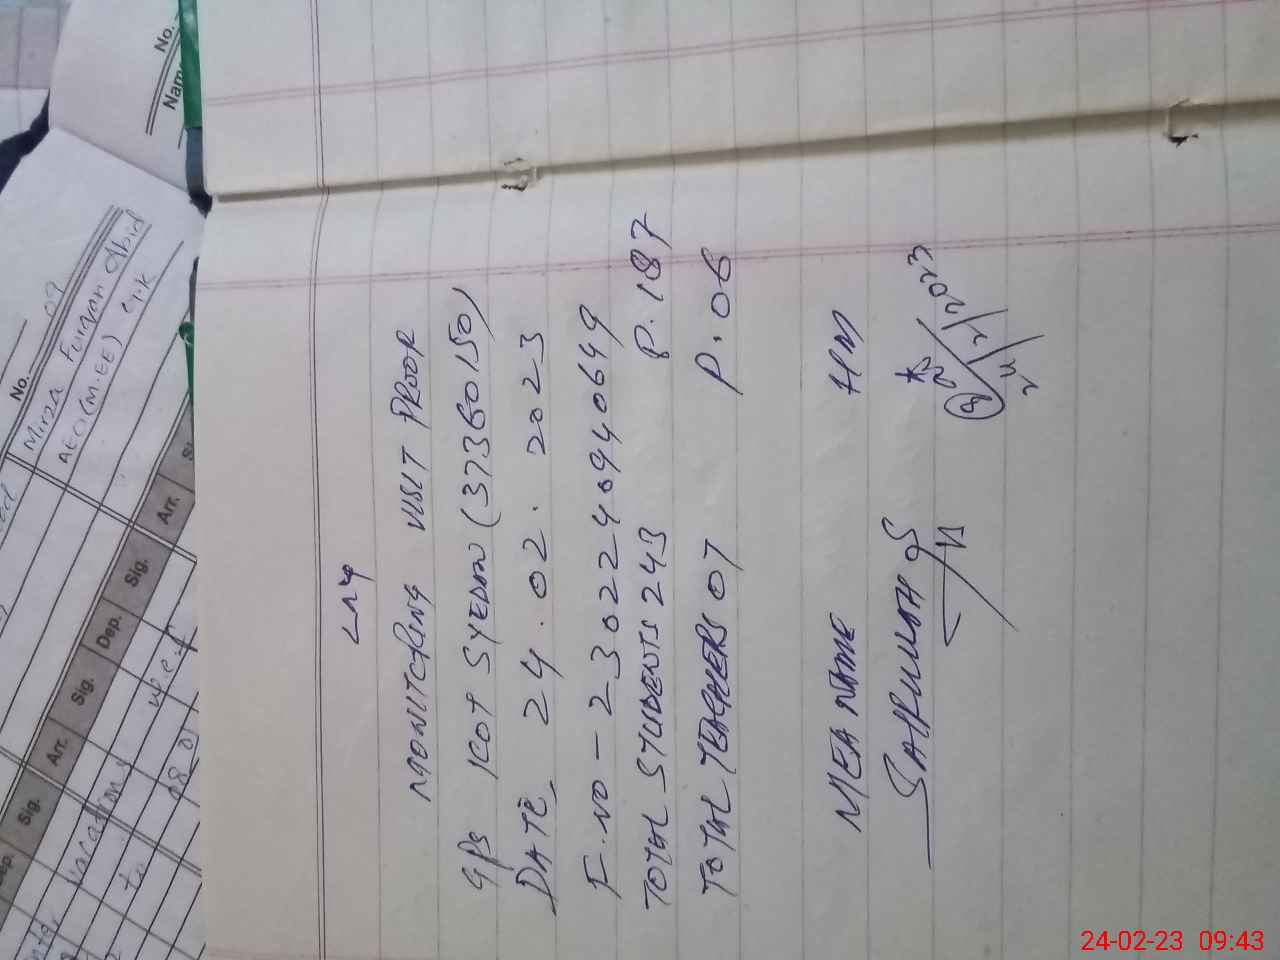 LND
MONITORING VISIT PROOF
GPS KOT SYEDAN (37360150)
DATE, 24.02.2023
F.NO-230224094940649
TOTAL STUDENTS 243 P.187
TOTAL TEACHERS 07 P.06
MEA NAME HM
SAIFULLAH
24/2/2023
No. 09
Mirza Furqan Abid
AEO(M.EE) G.K
Arr.
Sig.
Dep.
Sig.
Arr.
Sig.
vacations w.e.f
to
No.
Name
24-02-23 09:43